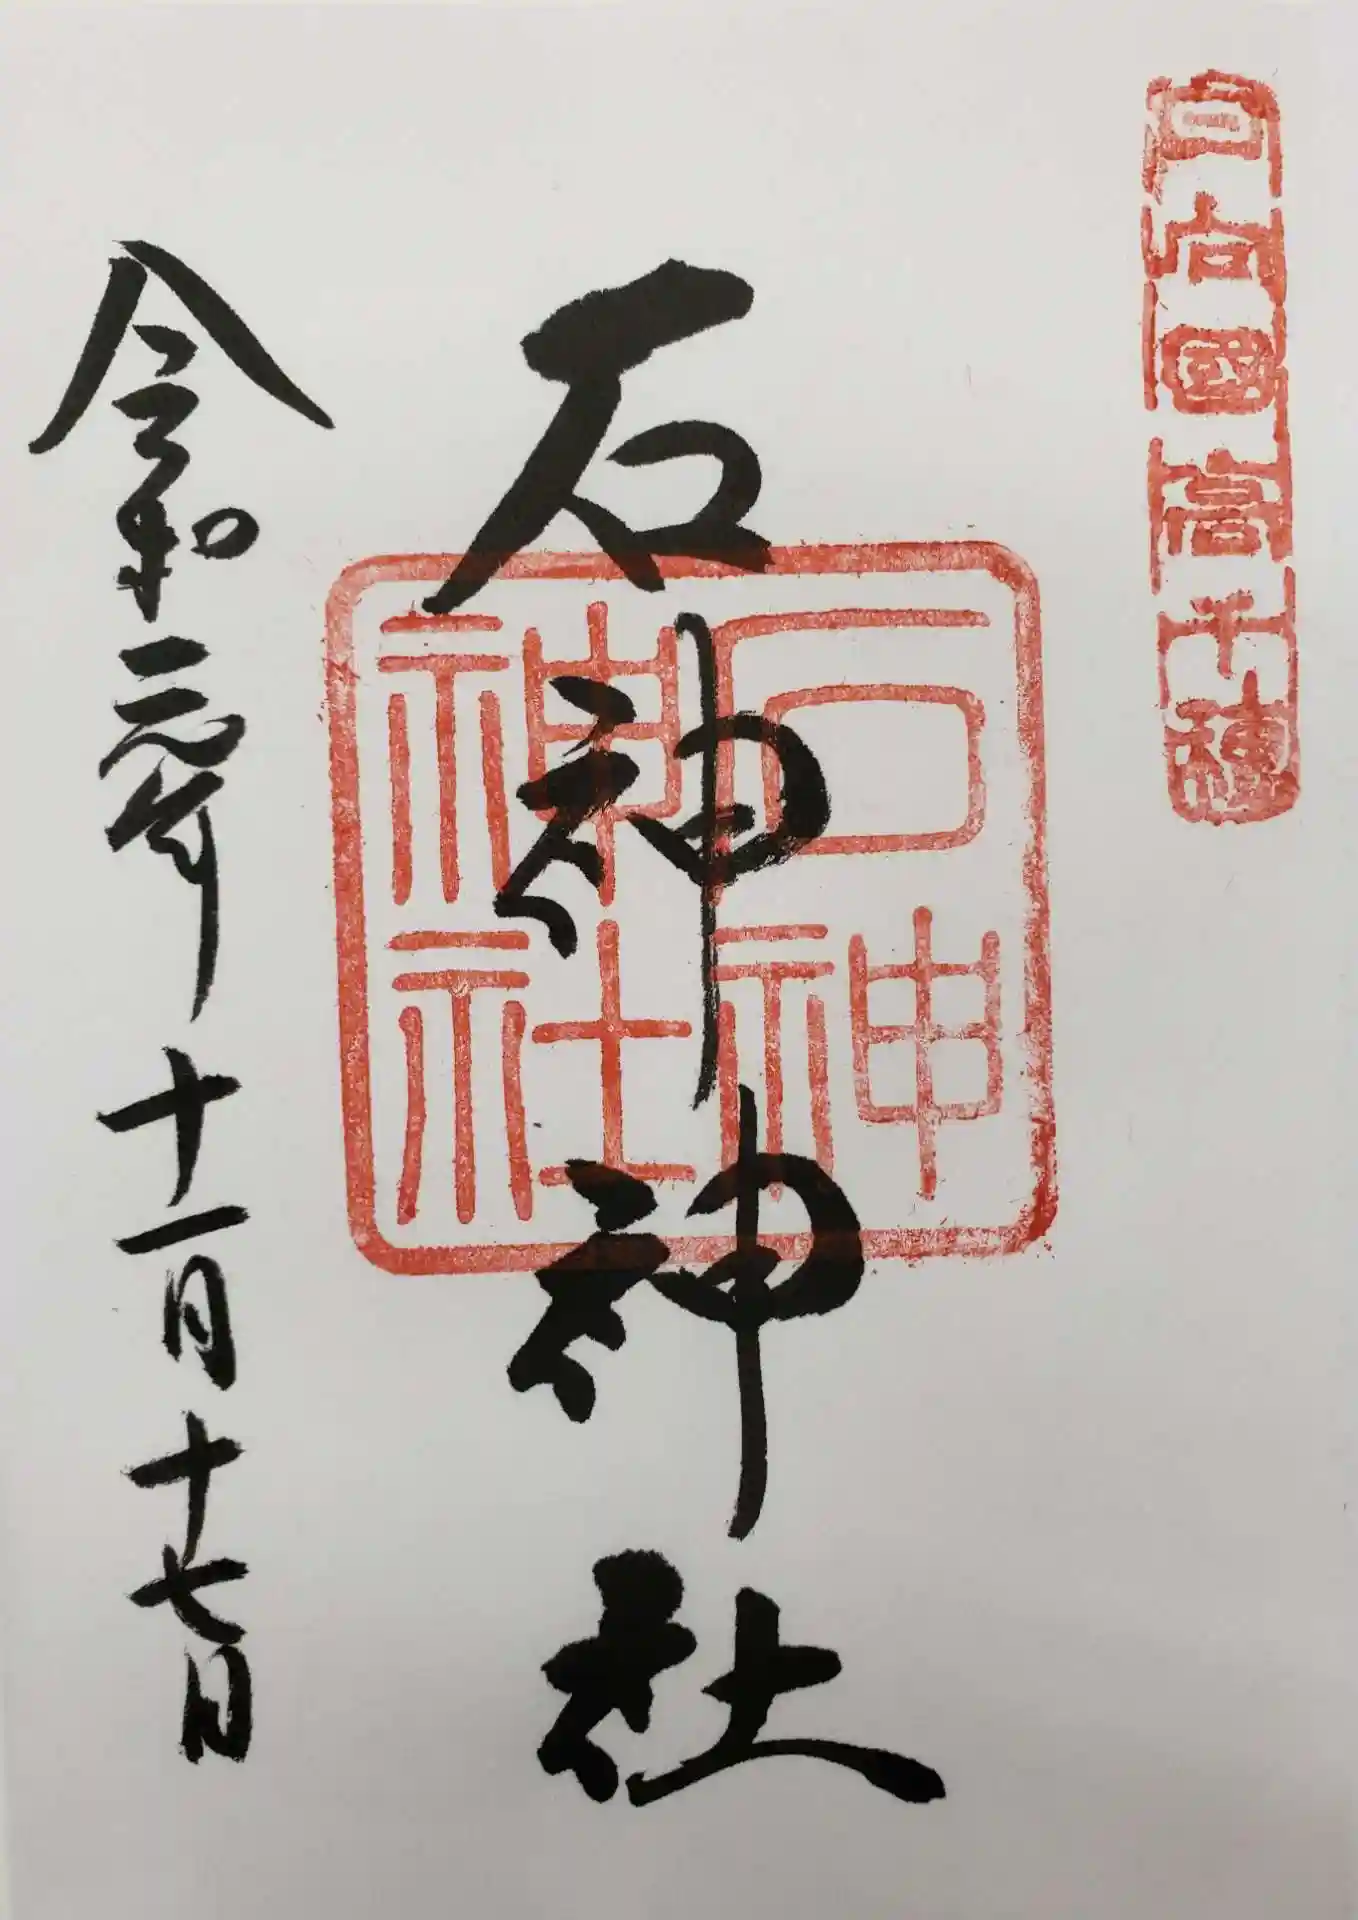 日向國高千穂
石神神社
石神神社
令和元年十一月十七日